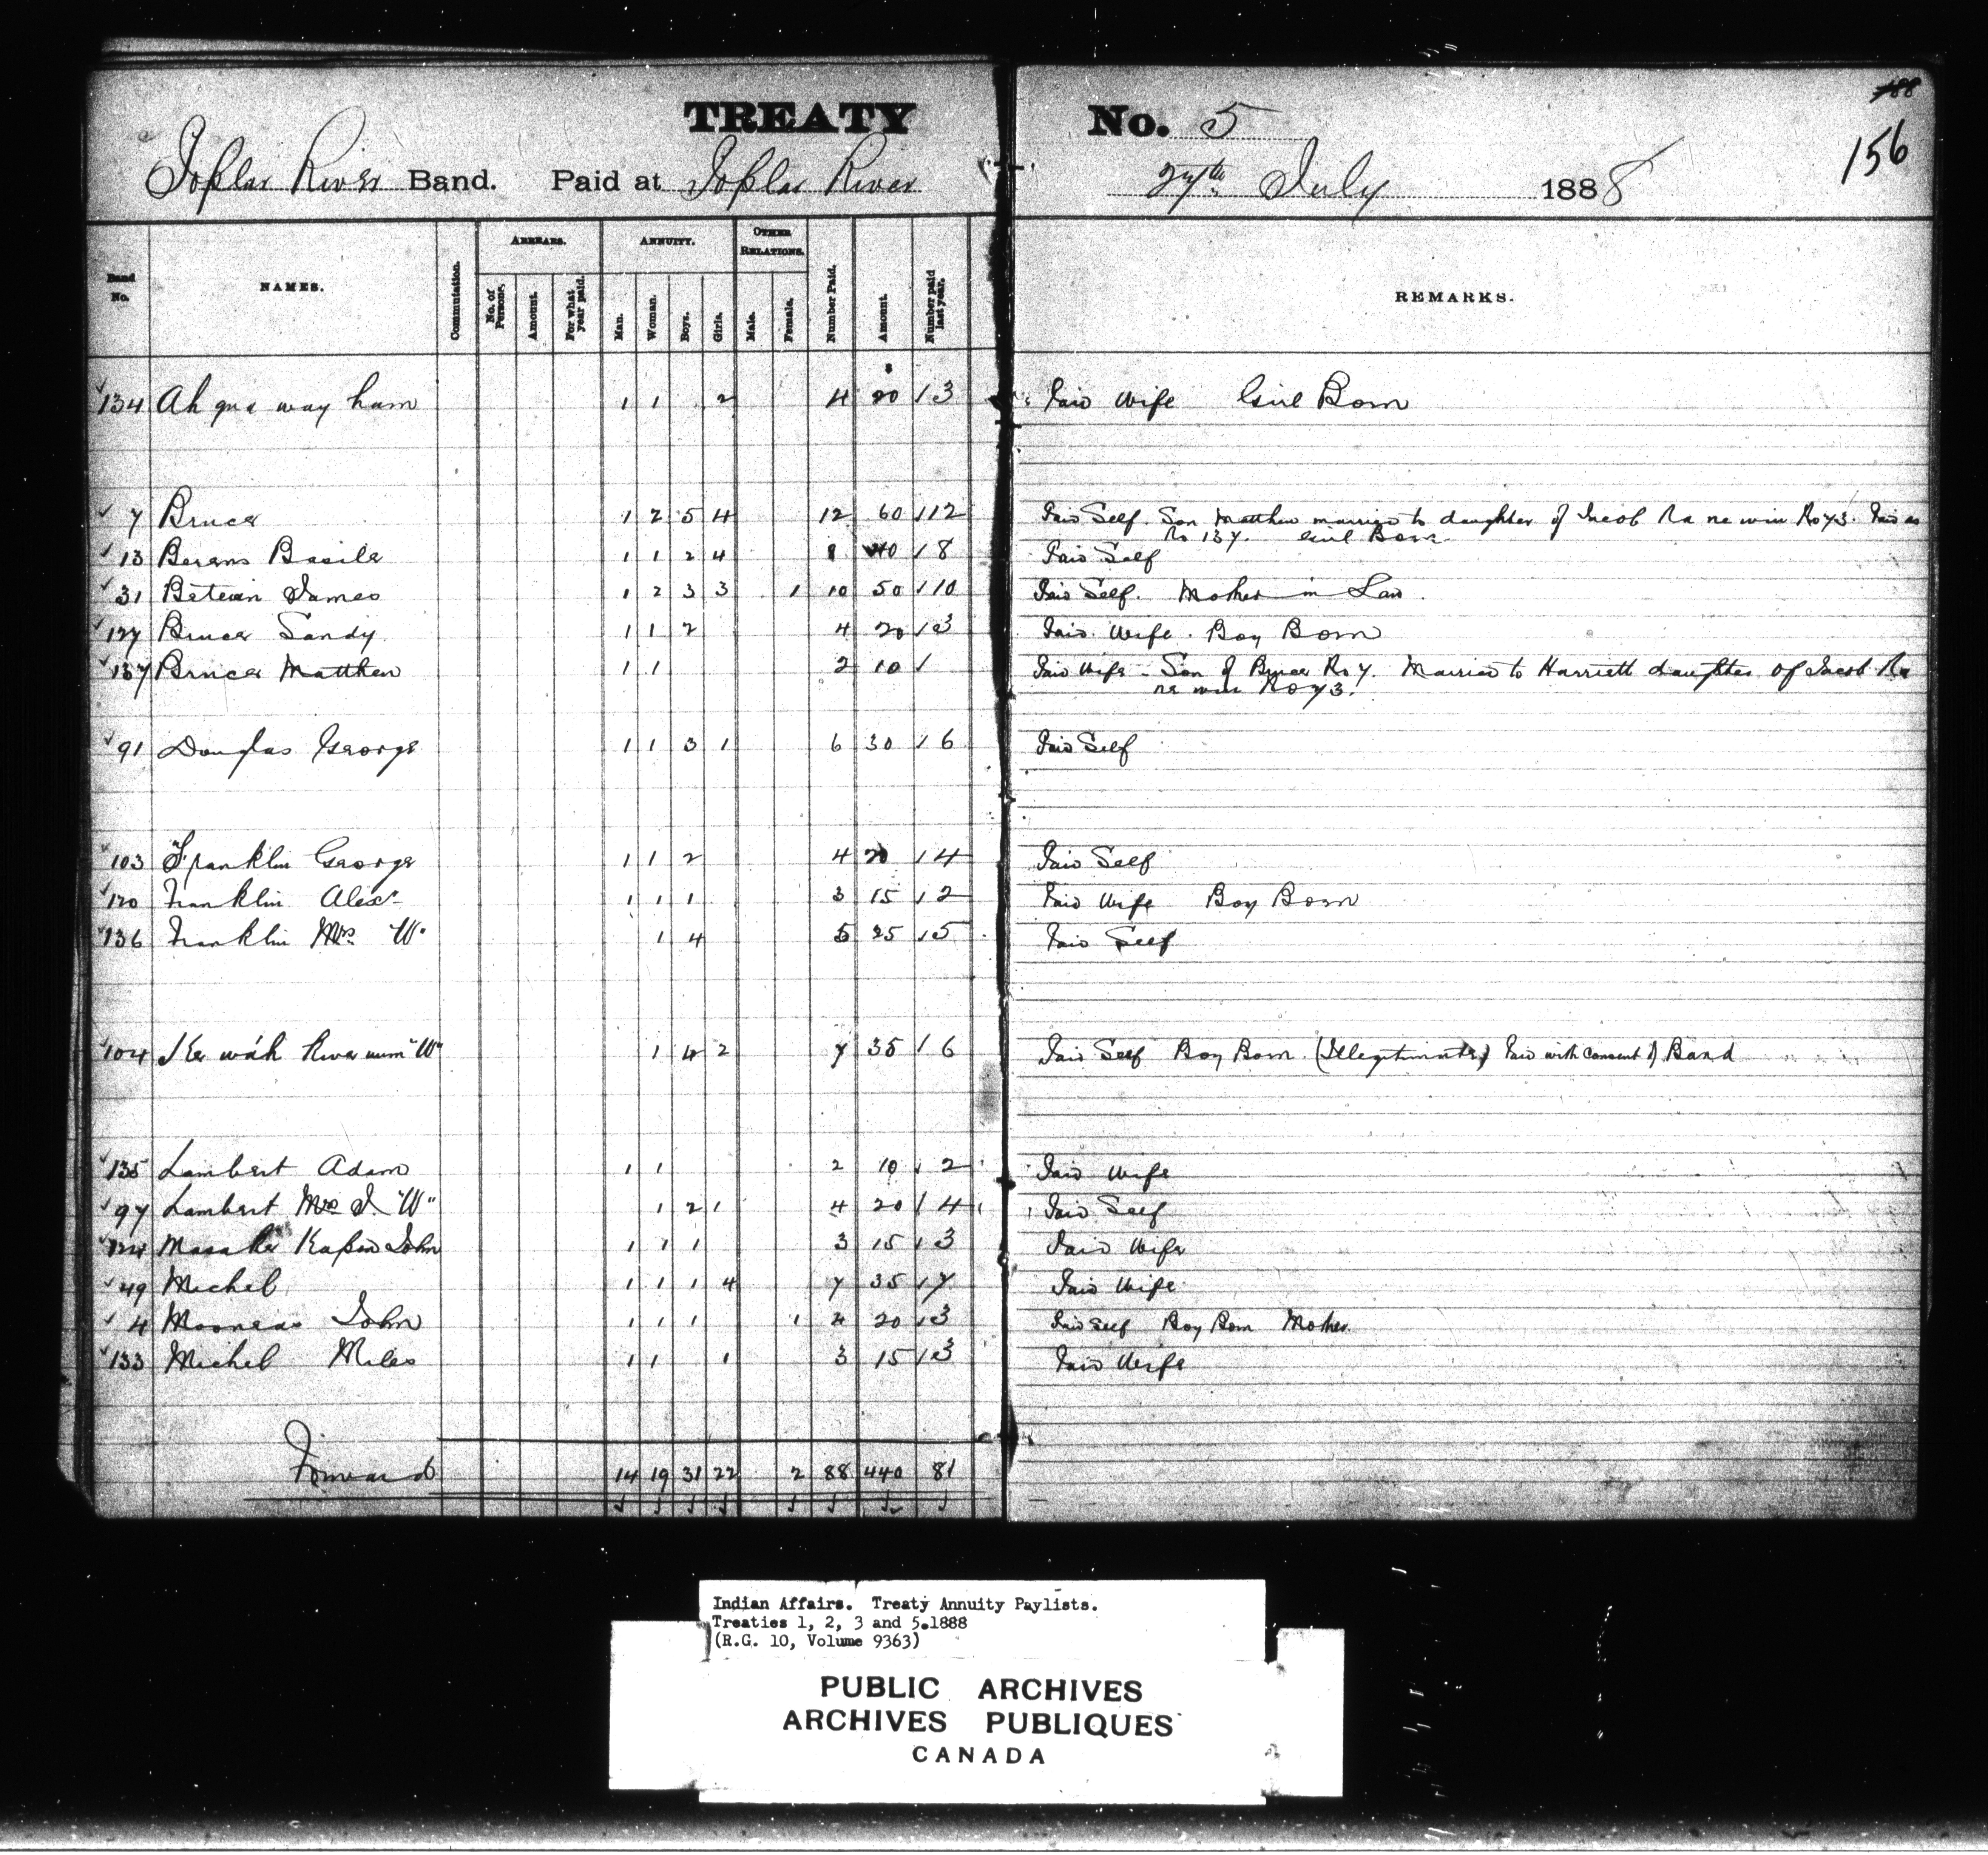 188
TREATY No. 5
156
Poplar River Band. Paid at Poplar River 27th July 1888
Band No. NAMES. Commutation. ARREARS. No. of Persons. Amount. For what year paid. ANNUITY. Man. Woman. Boys. Girls. OTHER RELATIONS. Male. Female. Number Paid. Amount. Number paid last year. REMARKS.
$
134 Ah qua way ham 1 1 2 4 20 / 3 Paid Wife Girl Born
7 Bruce 1 2 5 4 12 60 / 12 Paid Self. Son Matthew married to daughter of Jacob Na ne win No 73. Paid as
No 137. Girl Born
13 Berens Basile 1 1 2 4 8 40 / 8 Paid Self
31 James 1 2 3 3 1 10 50 / 10 Paid Self. Mother in Law.
127 Bruce Sandy 1 1 2 4 20 / 3 Paid Wife. Boy Born
137 Bruce Matthew 1 1 2 10 / Paid Wife - Son of Bruce No 7. Married to Harriett daughter of Jacob Na
ne win No 73.
91 Douglas George 1 1 3 1 6 30 / 6 Paid Self
103 Franklin George 1 1 2 4 20 / 4 Paid Self
120 Franklin Alexr 1 1 1 3 15 / 2 Paid Wife Boy Born
136 Franklin Mrs "W" 1 4 5 25 / 5 Paid Self
104 Ke wah "W" 1 4 2 7 35 / 6 Paid Self Boy Born (Illegitimate) Paid with consent of Band
135 Lambert Adam 1 1 2 10 / 2 Paid Wife
97 Lambert Mrs J. "W" 1 2 1 4 20 / 4 Paid Self
124 John 1 1 1 3 15 / 3 Paid Wife
49 Michel 1 1 1 4 7 35 / 7 Paid Wife
4 Mooneas John 1 1 1 1 4 20 / 3 Paid Self Boy Born Mother.
133 Michel Miles 1 1 1 3 15 / 3 Paid Wife
Forward 14 19 31 22 2 88 440 81
Indian Affairs. Treaty Annuity Paylists.
Treaties 1, 2, 3 and 5.1888
(R.G. 10, Volume 9363)
PUBLIC ARCHIVES
ARCHIVES PUBLIQUES
CANADA